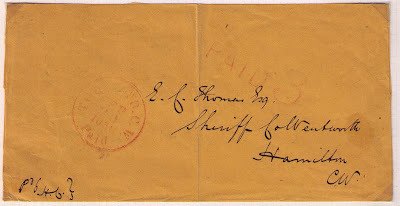 PAID 3
E. C. Thomas Esq
Sheriff Co Wentworth
Hamilton
CW